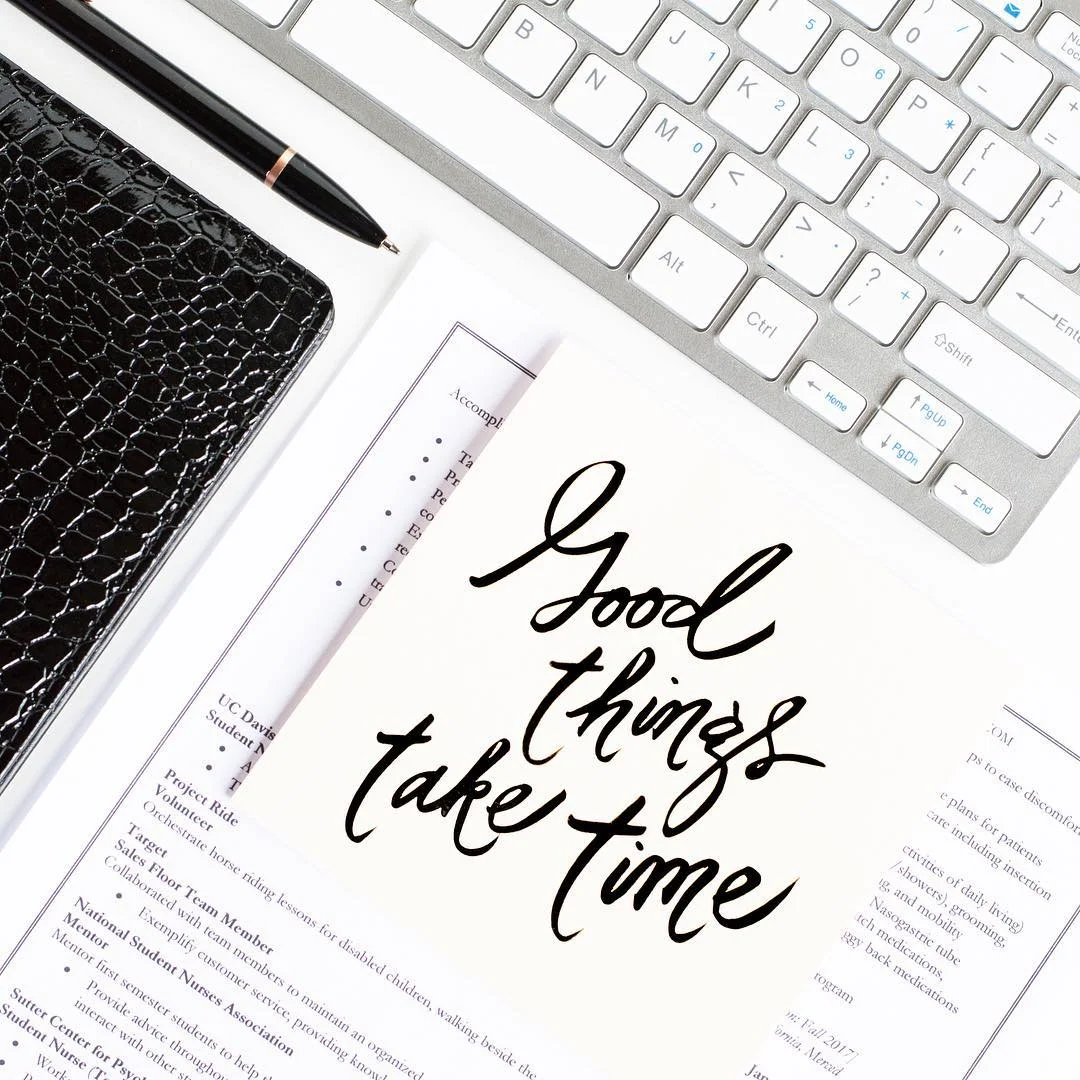 B
N
M 0
J 1
K 2
L 3
I 5
O 6
P *
) 0 /
_ -
+ =
< ,
> . .
: ; -
" '
? / +
{ [
} ]
Alt
Ctrl
Shift
Home
PgUp
PgDn
End
Good
things
take time
Accompl
Ta
Pr
Pe
co
Ex
re
Co
tra
U
UC Davis
Student N
A
T
Project Ride
Volunteer
Orchestrate horse riding lessons for disabled children, walking beside the
Target
Sales Floor Team Member
Collaborated with team members to maintain an organized
Exemplify customer service, providing knowl
National Student Nurses Association
Mentor
Mentor first semester students to help th
Provide advice throughou
interact with other s
Sutter Center for Psych
Student Nurse (Te
Worke
.COM
ps to ease discomfor
e plans for patients
care including insertion
ctivities of daily living)
/showers), grooming,
g, and mobility
Nasogastric tube
tch medications,
ggy back medications
rogram
m: Fall 2017]
ornia, Merced
Jan